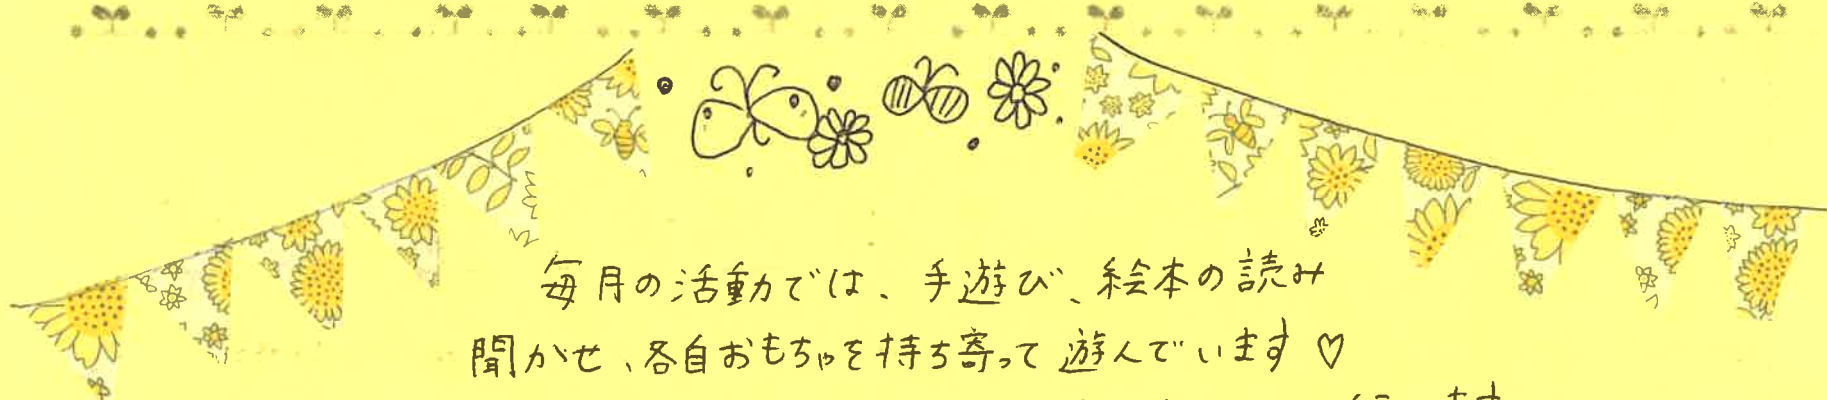 毎月の活動では、手遊び、絵本の読み
聞かせ、各自おもちゃを持ち寄って遊んでいます♡